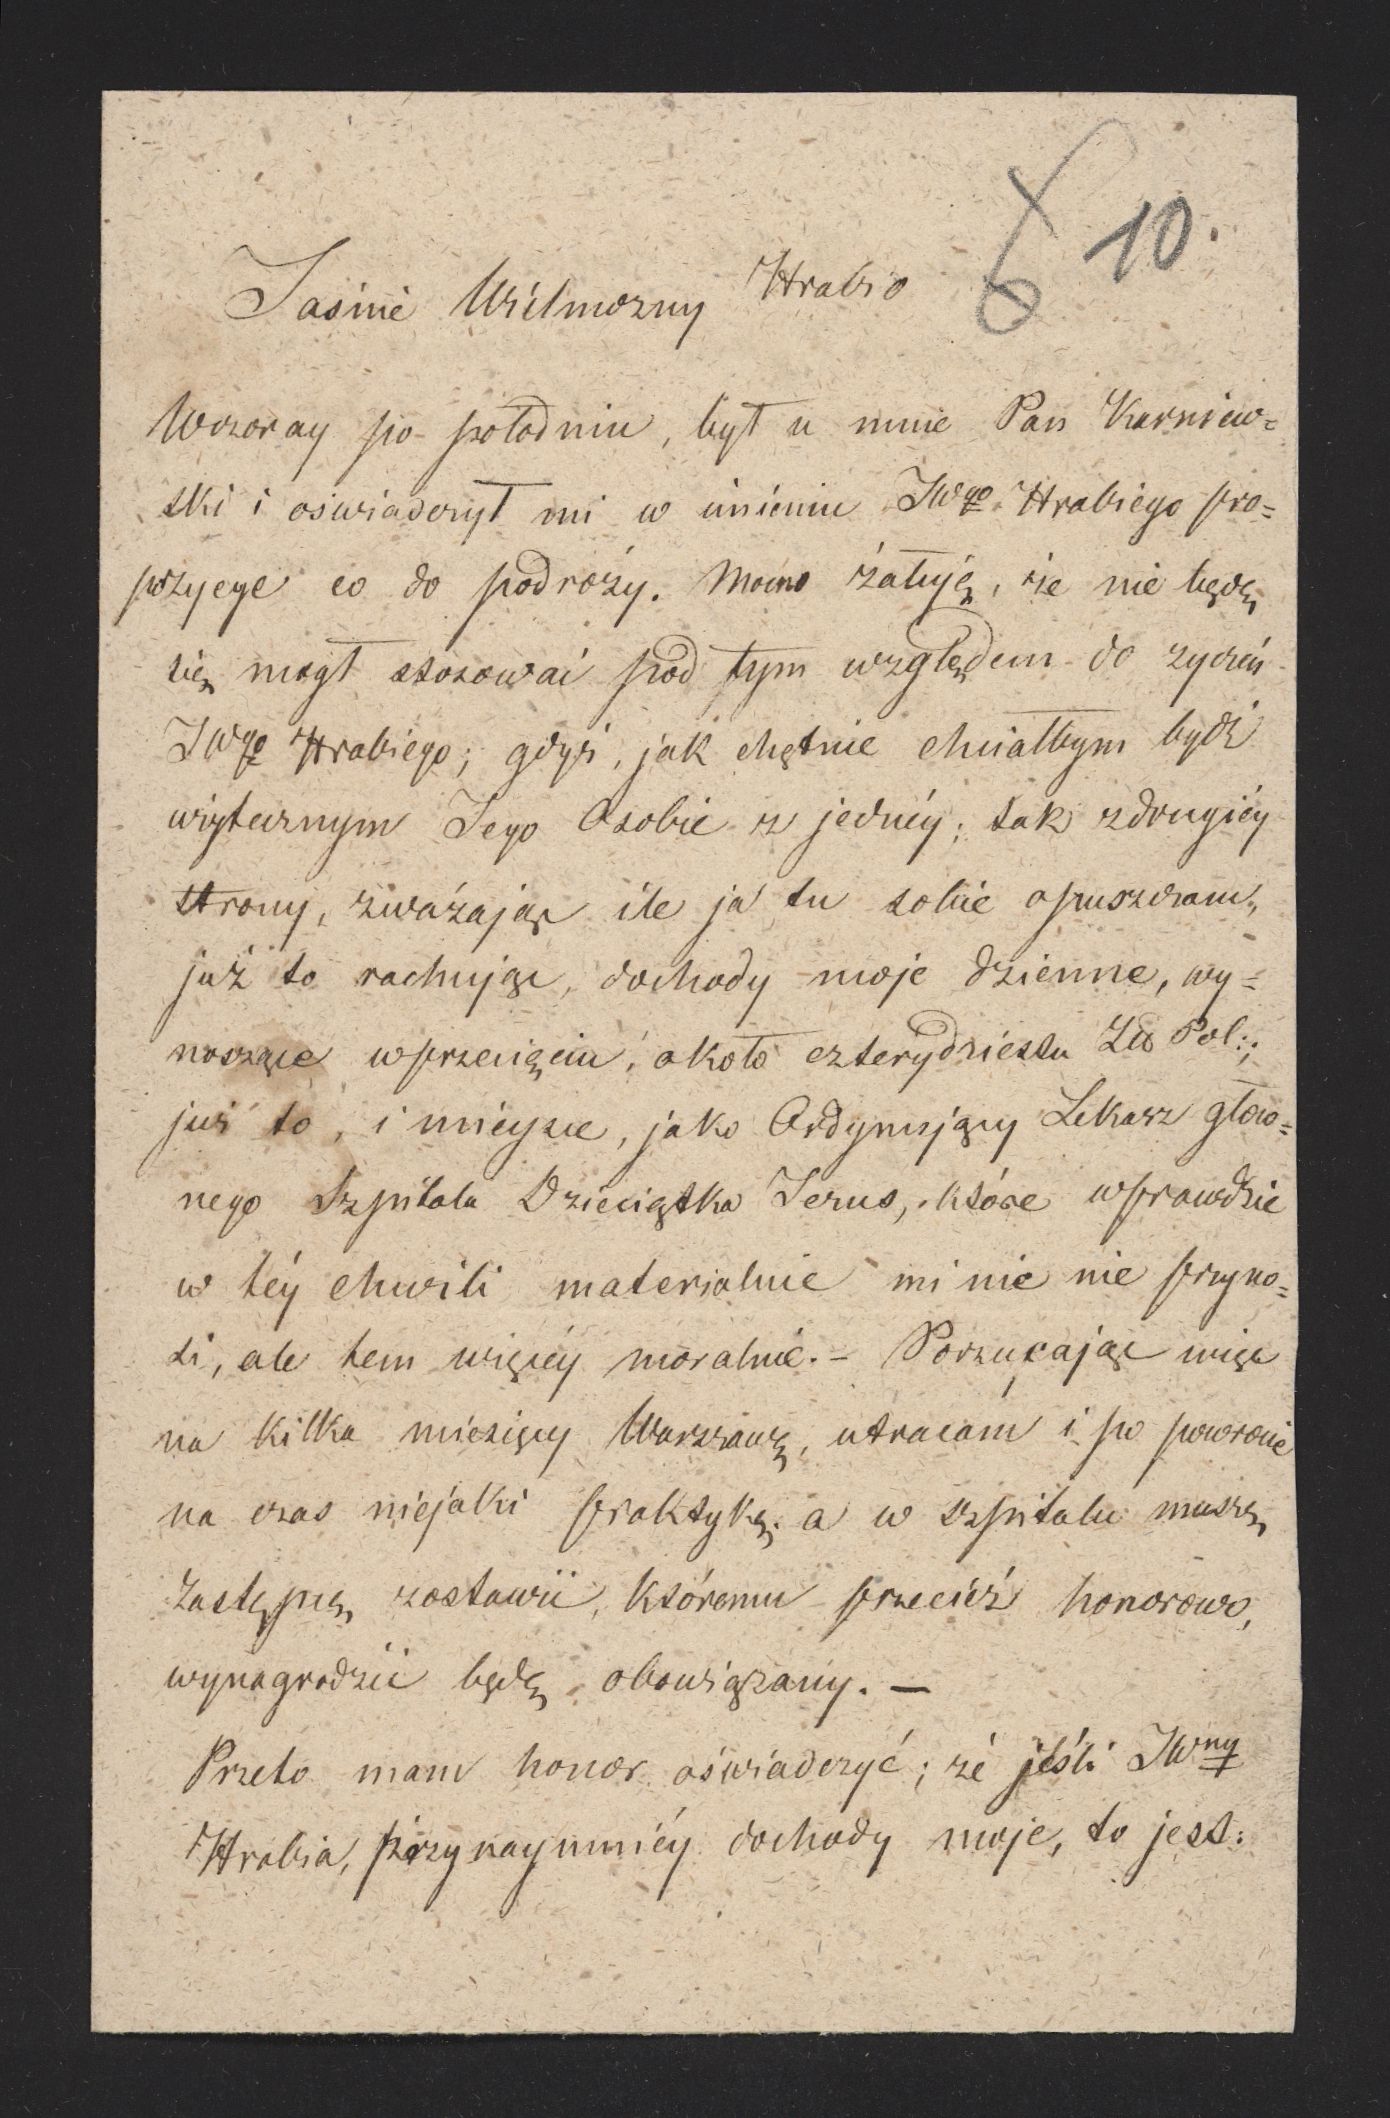 10.
Jaśnie Wielmożny Hrabio
Wczoray po połodniu, był u mnie Pan Karniew=
ski i oświadczył mi w imieniu JWgo Hrabiego pro=
pozycye co do podroży. Mocno żałuję, że nie będę
się mogł stosować pod tym względem do zyczeń
JWgo Hrabiego; gdyż, jak chętnie chciałbym bydź
użytecznym Jego Osobie z jednéy; tak z drugiéy
strony, zważając ile ja tu sobie opuszczam,
już to rachując, dochody moje dzienne, wy=
noszące w przecięciu, około czterydziestu Zł Pol:;
już to, i mieysce, jako Ordynujący Lekarz głow=
nego Szpitala Dzieciątka Jezus, które wprawdzie
w téy chwili materialnie mi nic nie przyno=
si, ale tem więcéy moralnie. – Porzucając więc
na kilka miesięcy Warszawę, utracam i po powrocie
na czas niejaki praktykę, a w szpitalu muszę
Zastępcę zostawić, któremu przecież honorowo,
wynagrodzić będę obowiązany. –
Przeto mam honor oświadczyć; że jeśli JWny
Hrabia, przynaymniéy dochody moje, to jest: